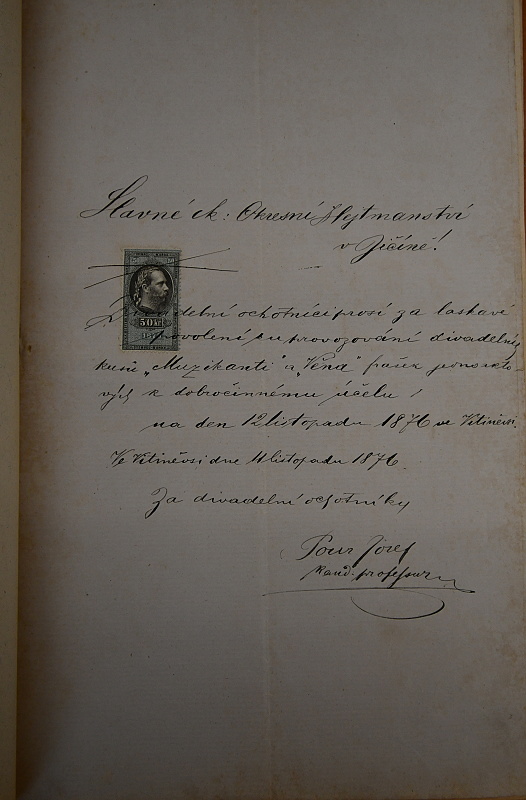 Slavné ck: Okresní Hejtmanství
v Jičíně!
50 kr
Divadelní ochotníci prosí za laskavé
povolení ku provozování divadelních
kusů „Muzikanti" a „Věna"
k dobročinnému účelu
na den 12 listopadu 1876 ve Vitiněvsi.
Ve Vitiněvsi dne 4 listopadu 1876.
Za divadelní ochotníky
Pour Josef
kand. professur